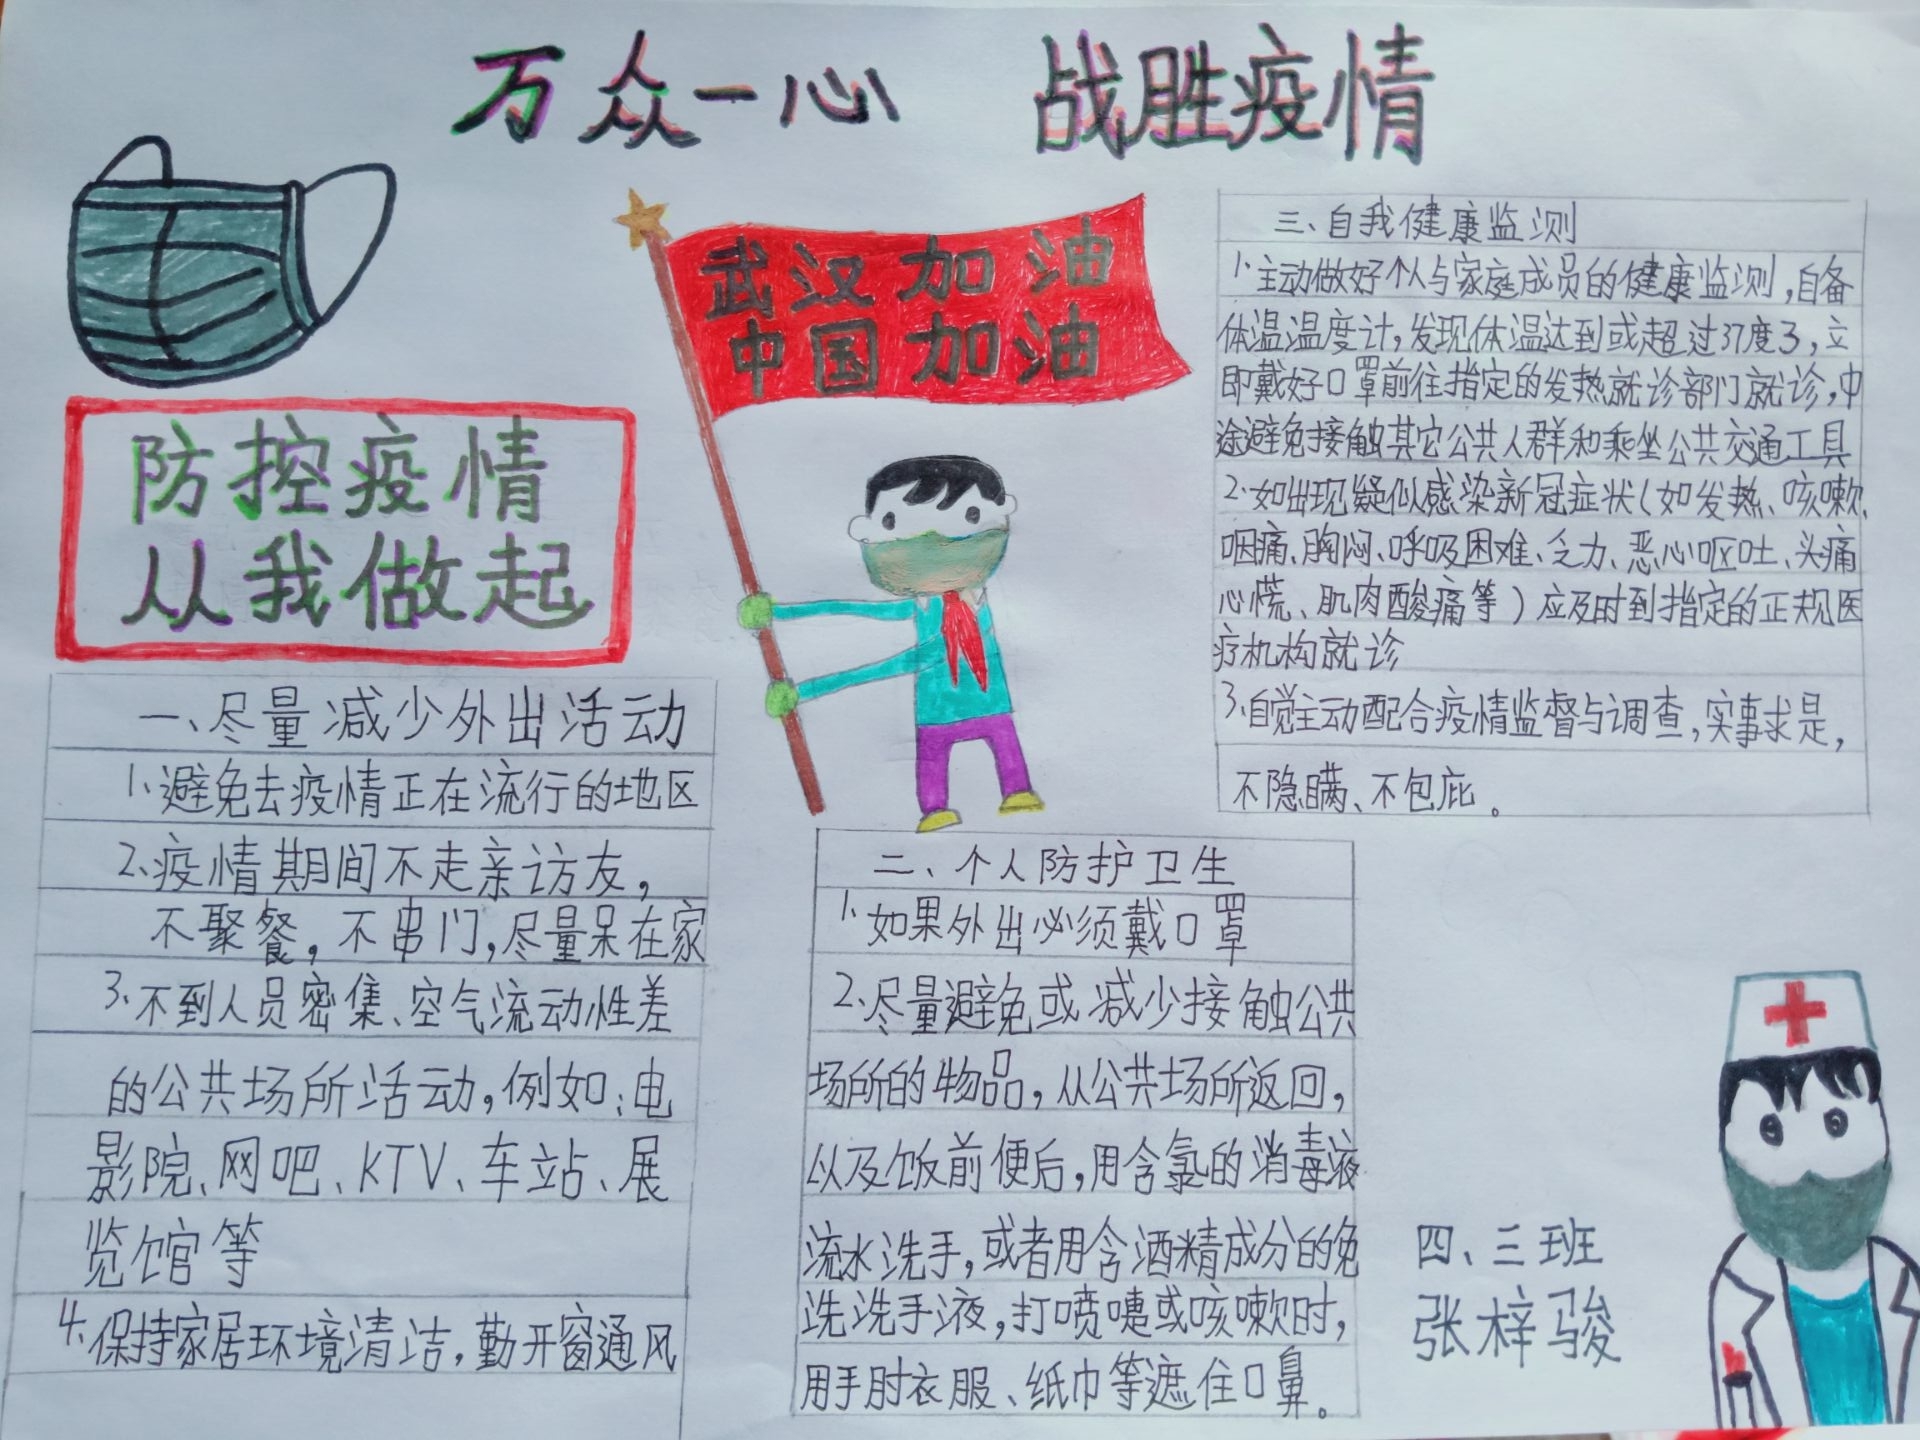 万众一心 战胜疫情
武汉加油
中国加油
防控疫情
从我做起
一、尽量减少外出活动
1、避免去疫情正在流行的地区
2、疫情期间不走亲访友，
不聚餐，不串门，尽量呆在家
3、不到人员密集、空气流动性差
的公共场所活动，例如：电
影院、网吧、KTV、车站、展
览馆等
4、保持家居环境清洁，勤开窗通风
二、个人防护卫生
1、如果外出必须戴口罩
2、尽量避免或减少接触公共
场所的物品，从公共场所返回，
以及饭前便后，用含氯的消毒液
流水洗手，或者用含酒精成分的免
洗洗手液，打喷嚏或咳嗽时，
用手肘衣服、纸巾等遮住口鼻。
三、自我健康监测
1、主动做好个人与家庭成员的健康监测，自备
体温温度计，发现体温达到或超过37度3，立
即戴好口罩前往指定的发热就诊部门就诊，中
途避免接触其它公共人群和乘坐公共交通工具
2、如出现疑似感染新冠症状（如发热、咳嗽、
咽痛、胸闷、呼吸困难、乏力、恶心呕吐、头痛
心慌、肌肉酸痛等）应及时到指定的正规医
疗机构就诊
3、自觉主动配合疫情监督与调查，实事求是，
不隐瞒、不包庇。
四、三班
张梓骏